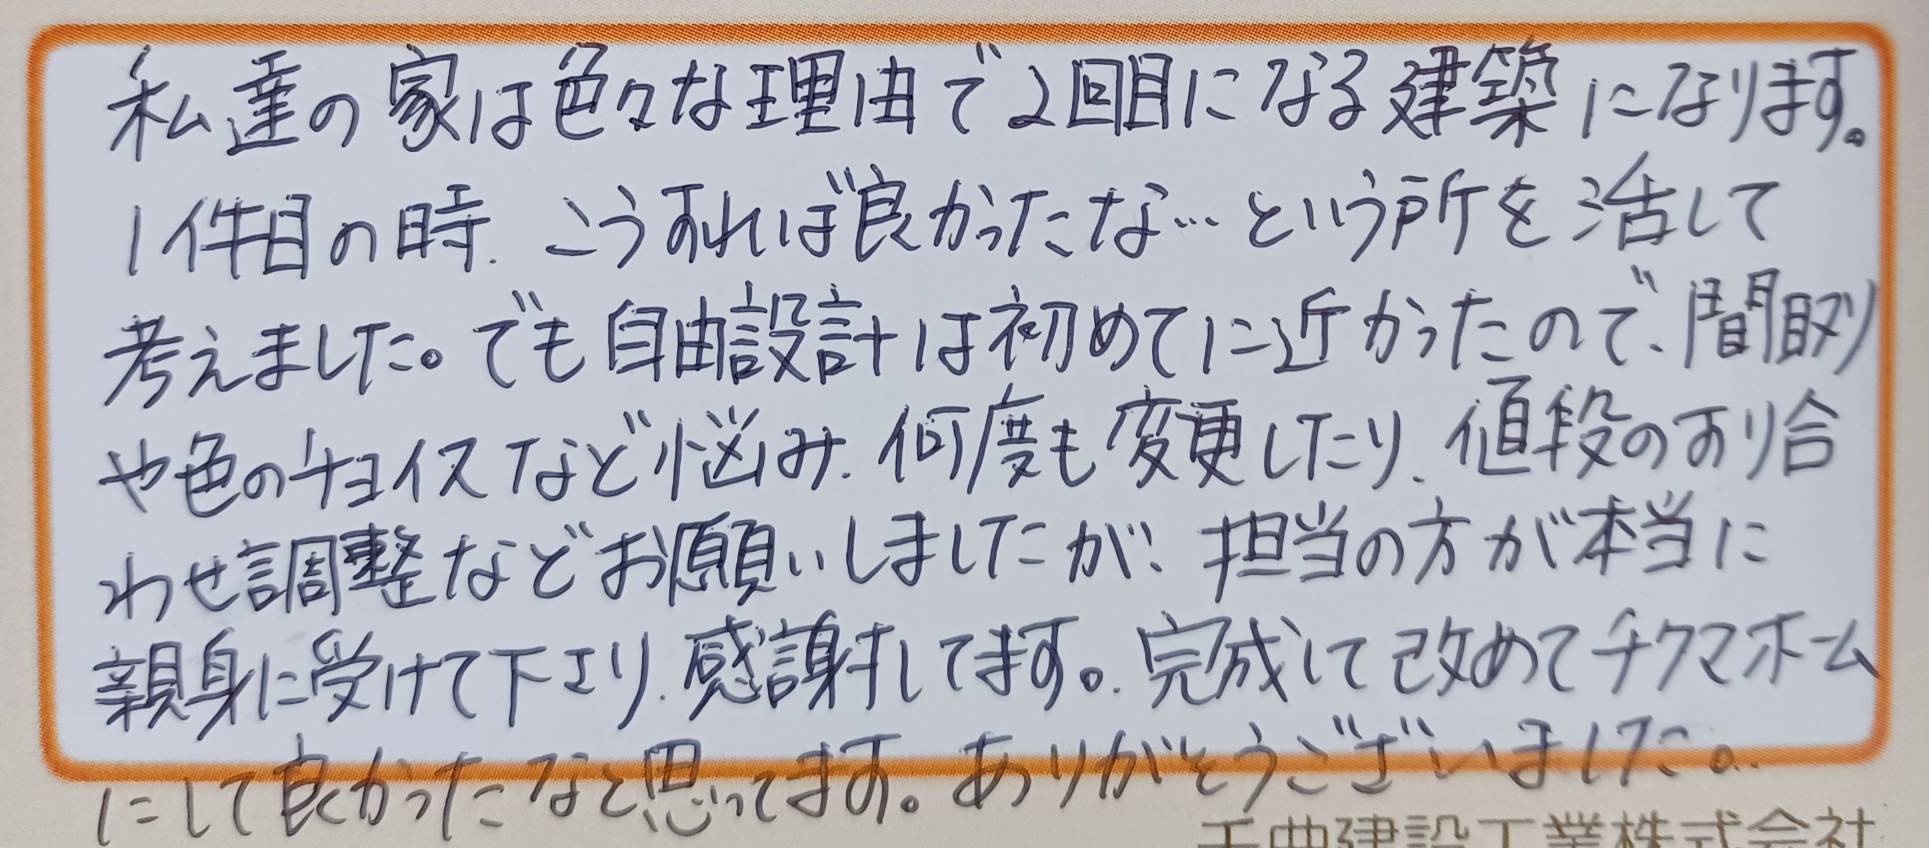 私達の家は色々な理由で2回目になる建築になります。
1件目の時、こうすれば良かったな…という所を活して
考えました。でも自由設計は初めてに近かったので、間取り
や色のチョイスなど悩み、何度も変更したり、値段のすり合
わせ調整などお願いしましたが、担当の方が本当に
親身に受けて下さり、感謝してます。完成して改めてチクマホーム
にして良かったなと思ってます。ありがとうございました。
千曲建設工業株式会社